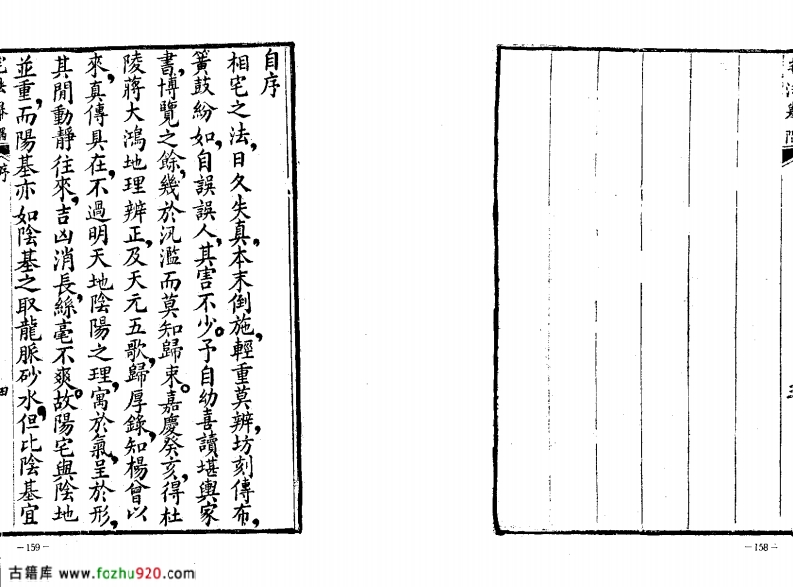 自序
相宅之法,日久失真,本末倒施,輕重莫辨,坊刻傳布,
簧鼓紛如,自誤誤人,其害不少。予自幼喜讀堪輿家
書,博覽之餘,幾於汎濫而莫知歸束。嘉慶癸亥,得杜
陵蔣大鴻地理辨正,及天元五歌,歸厚錄,知楊曾以
來,真傳具在,不過明天地陰陽之理,寓於氣,呈於形,
其閒動靜往來,吉凶消長,絲毫不爽。故陽宅與陰地
並重,而陽基亦如陰基之取龍脈砂水,但比陰基宜
—158—
—159—
古籍库 www.fozhu920.com